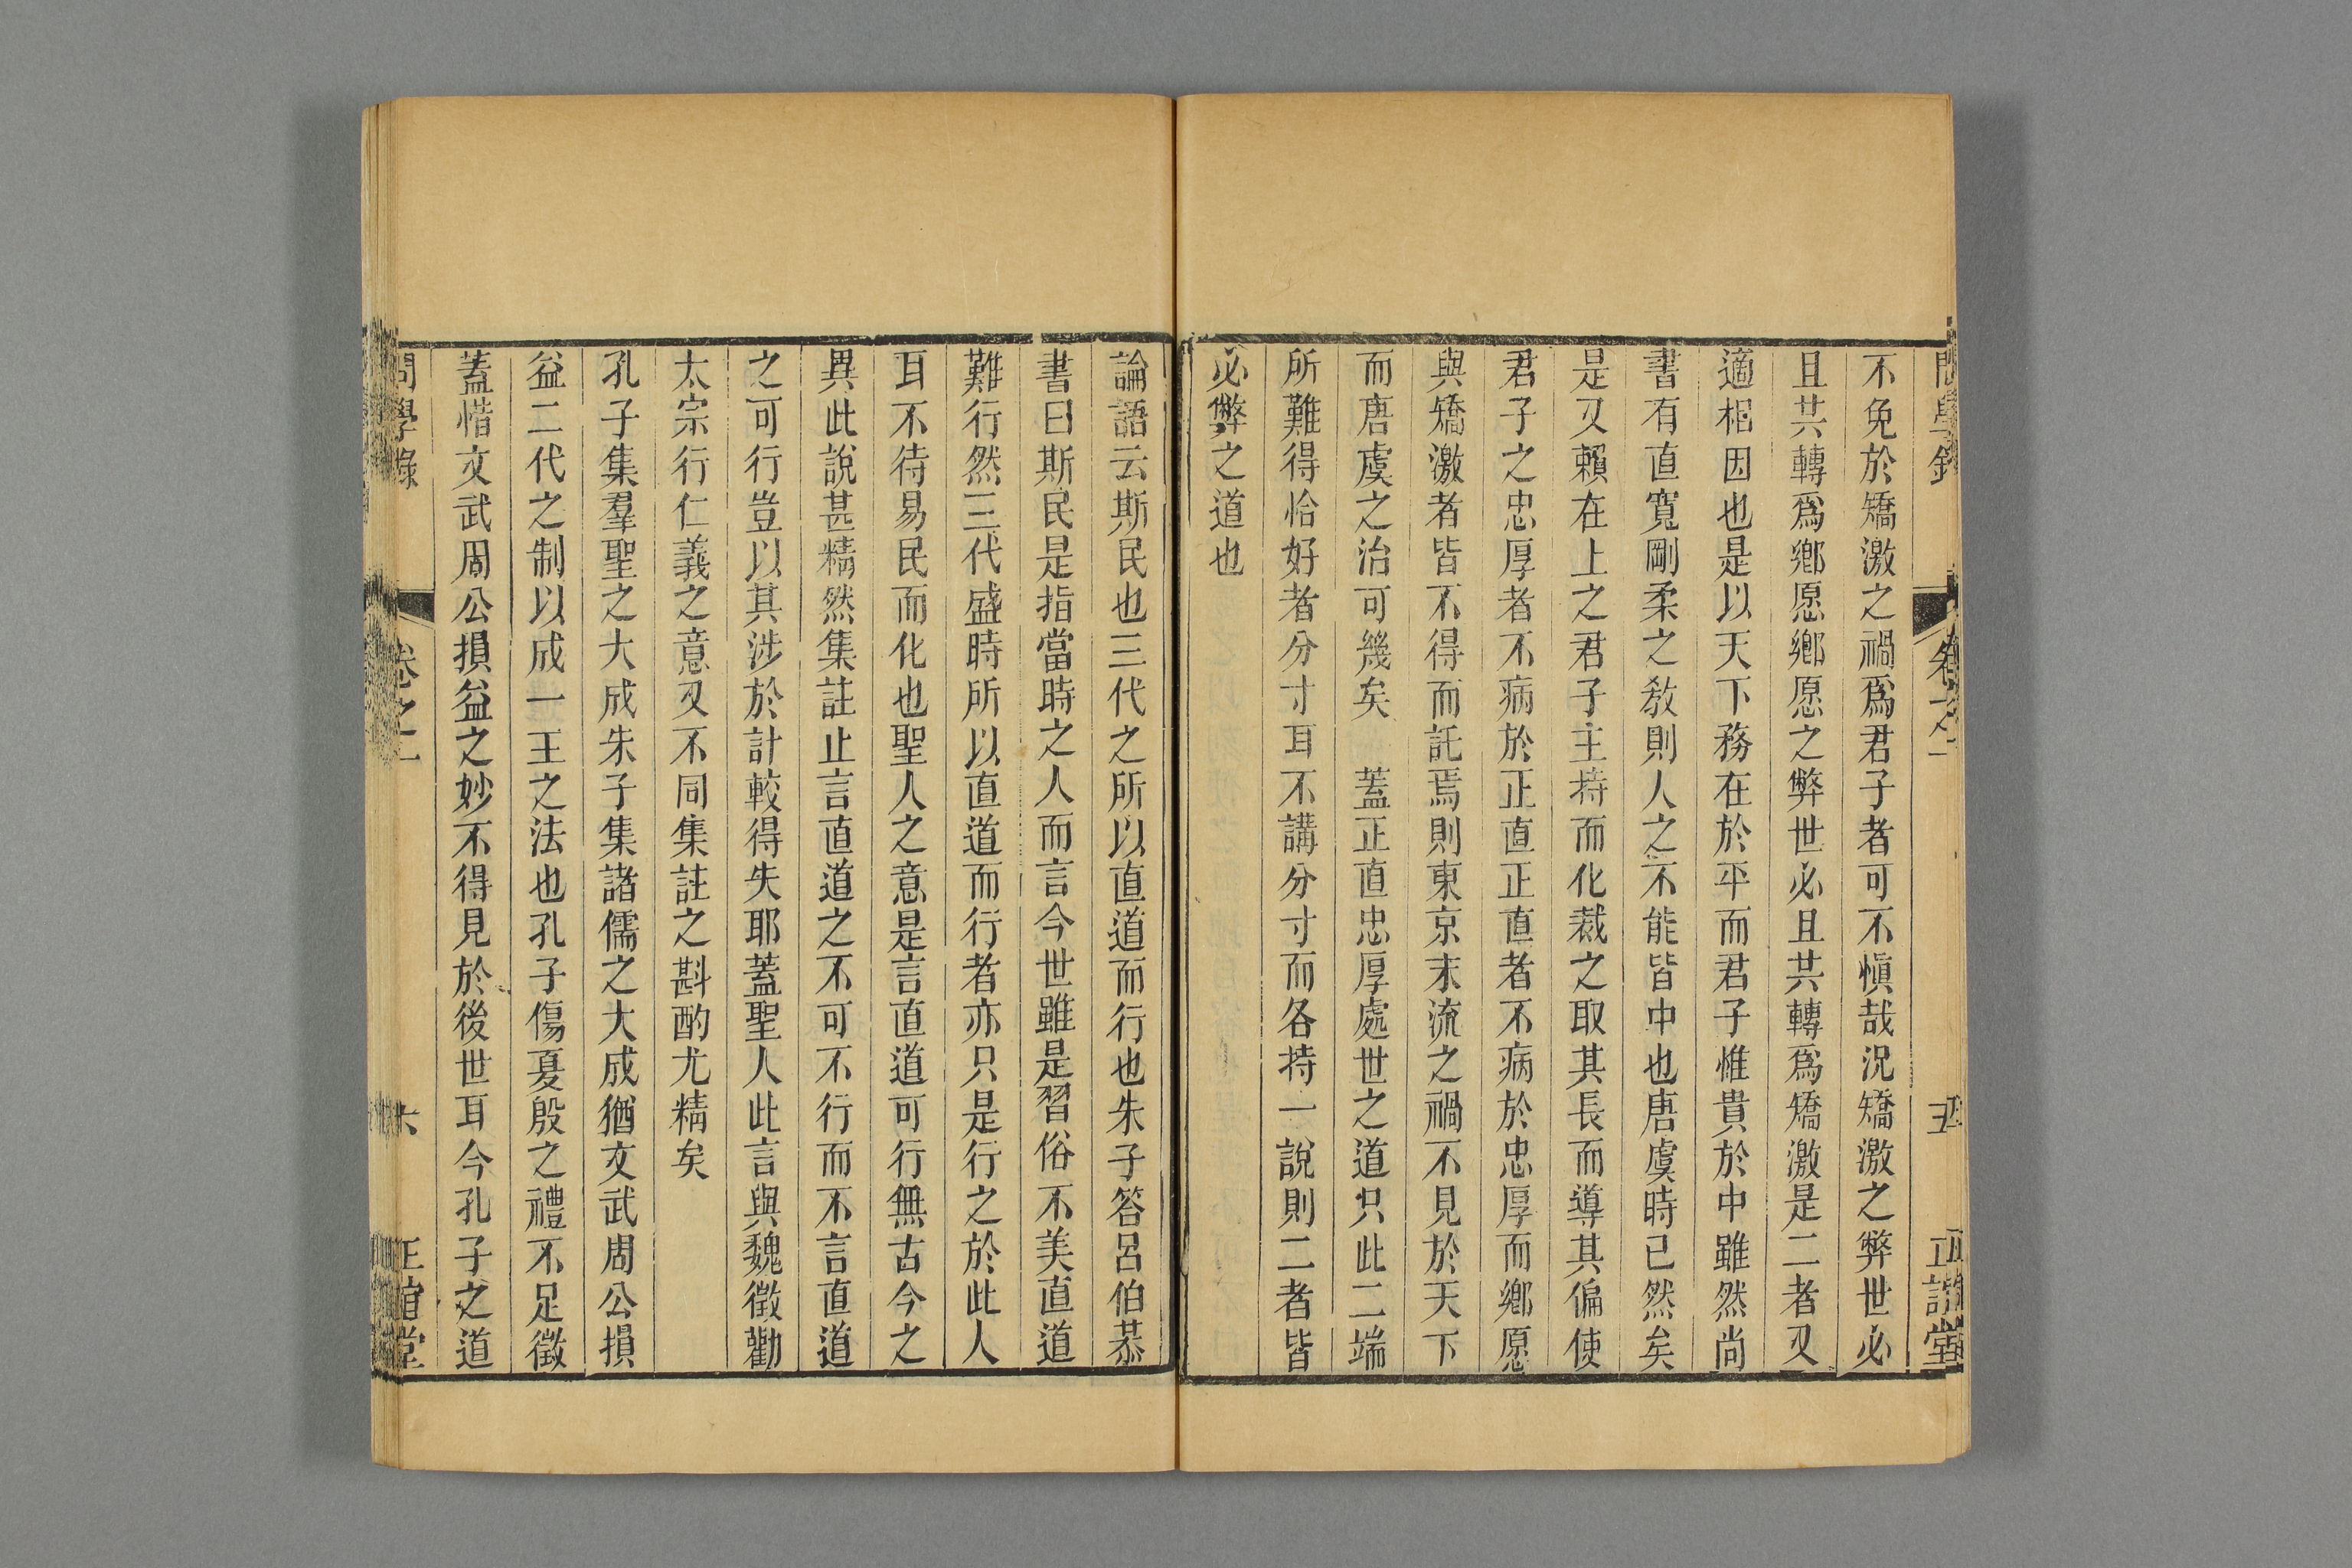 問學錄 卷之一 五 正誼堂
不免於矯激之禍爲君子者可不愼哉況矯激之弊世必
且共轉爲鄉愿鄉愿之弊世必且共轉爲矯激是二者又
適相因也是以天下務在於平而君子惟貴於中雖然尚
書有直寬剛柔之敎則人之不能皆中也唐虞時已然矣
是又賴在上之君子主持而化裁之取其長而導其偏使
君子之忠厚者不病於正直正直者不病於忠厚而鄉愿
與矯激者皆不得而託焉則東京末流之禍不見於天下
而唐虞之治可幾矣 蓋正直忠厚處世之道只此二端
所難得恰好者分寸耳不講分寸而各持一說則二者皆
必弊之道也
論語云斯民也三代之所以直道而行也朱子答呂伯恭
書曰斯民是指當時之人而言今世雖是習俗不美直道
難行然三代盛時所以直道而行者亦只是行之於此人
耳不待易民而化也聖人之意是言直道可行無古今之
異此說甚精然集註止言直道之不可不行而不言直道
之可行豈以其涉於計較得失耶蓋聖人此言與魏徵勸
太宗行仁義之意又不同集註之斟酌尤精矣
孔子集羣聖之大成朱子集諸儒之大成猶文武周公損
益二代之制以成一王之法也孔子傷夏殷之禮不足徵
蓋惜文武周公損益之妙不得見於後世耳今孔子之道
問學錄 卷之一 六 正誼堂